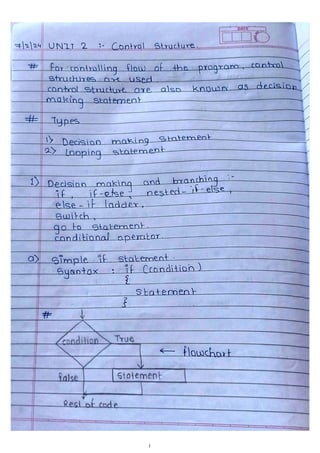 DATE
7/2/24 UNIT 2 :- Control Structure.
# For controlling flow of the program, control
structures are used.
control structure are also known as decision
making statement
# Types
1) Decision making statement
2) Looping statement
1) Decision making and branching :-
if, if-else, nested-if-else,
else-if ladder,
switch,
go to statement.
conditional operator.
a) Simple if statement.
Syantax : if (condition)
{
Statement
}
#
condition True
← flowchart
false Statement
Rest of code
1